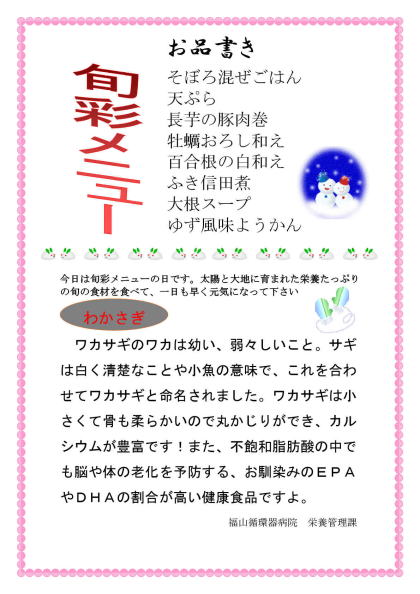 お品書き
旬彩メニュー
そぼろ混ぜごはん
天ぷら
長芋の豚肉巻
牡蠣おろし和え
百合根の白和え
ふき信田煮
大根スープ
ゆず風味ようかん
今日は旬彩メニューの日です。太陽と大地に育まれた栄養たっぷり
の旬の食材を食べて、一日も早く元気になって下さい
わかさぎ
ワカサギのワカは幼い、弱々しいこと。サギ
は白く清楚なことや小魚の意味で、これを合わ
せてワカサギと命名されました。ワカサギは小
さくて骨も柔らかいので丸かじりができ、カル
シウムが豊富です！また、不飽和脂肪酸の中で
も脳や体の老化を予防する、お馴染みのＥＰＡ
やＤＨＡの割合が高い健康食品ですよ。
福山循環器病院　栄養管理課